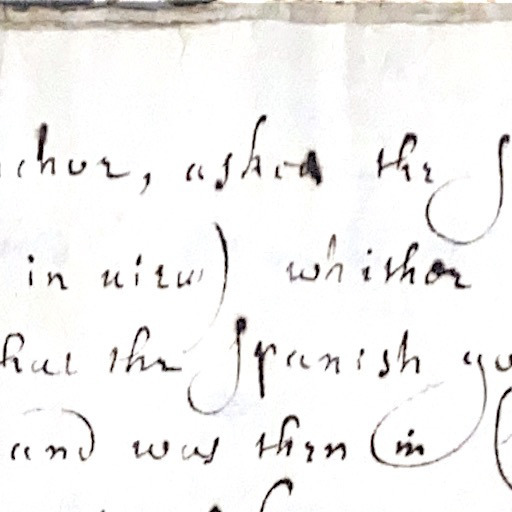 nchor, asked the S
in uiew) whither
hat the Spanish go
and was then in